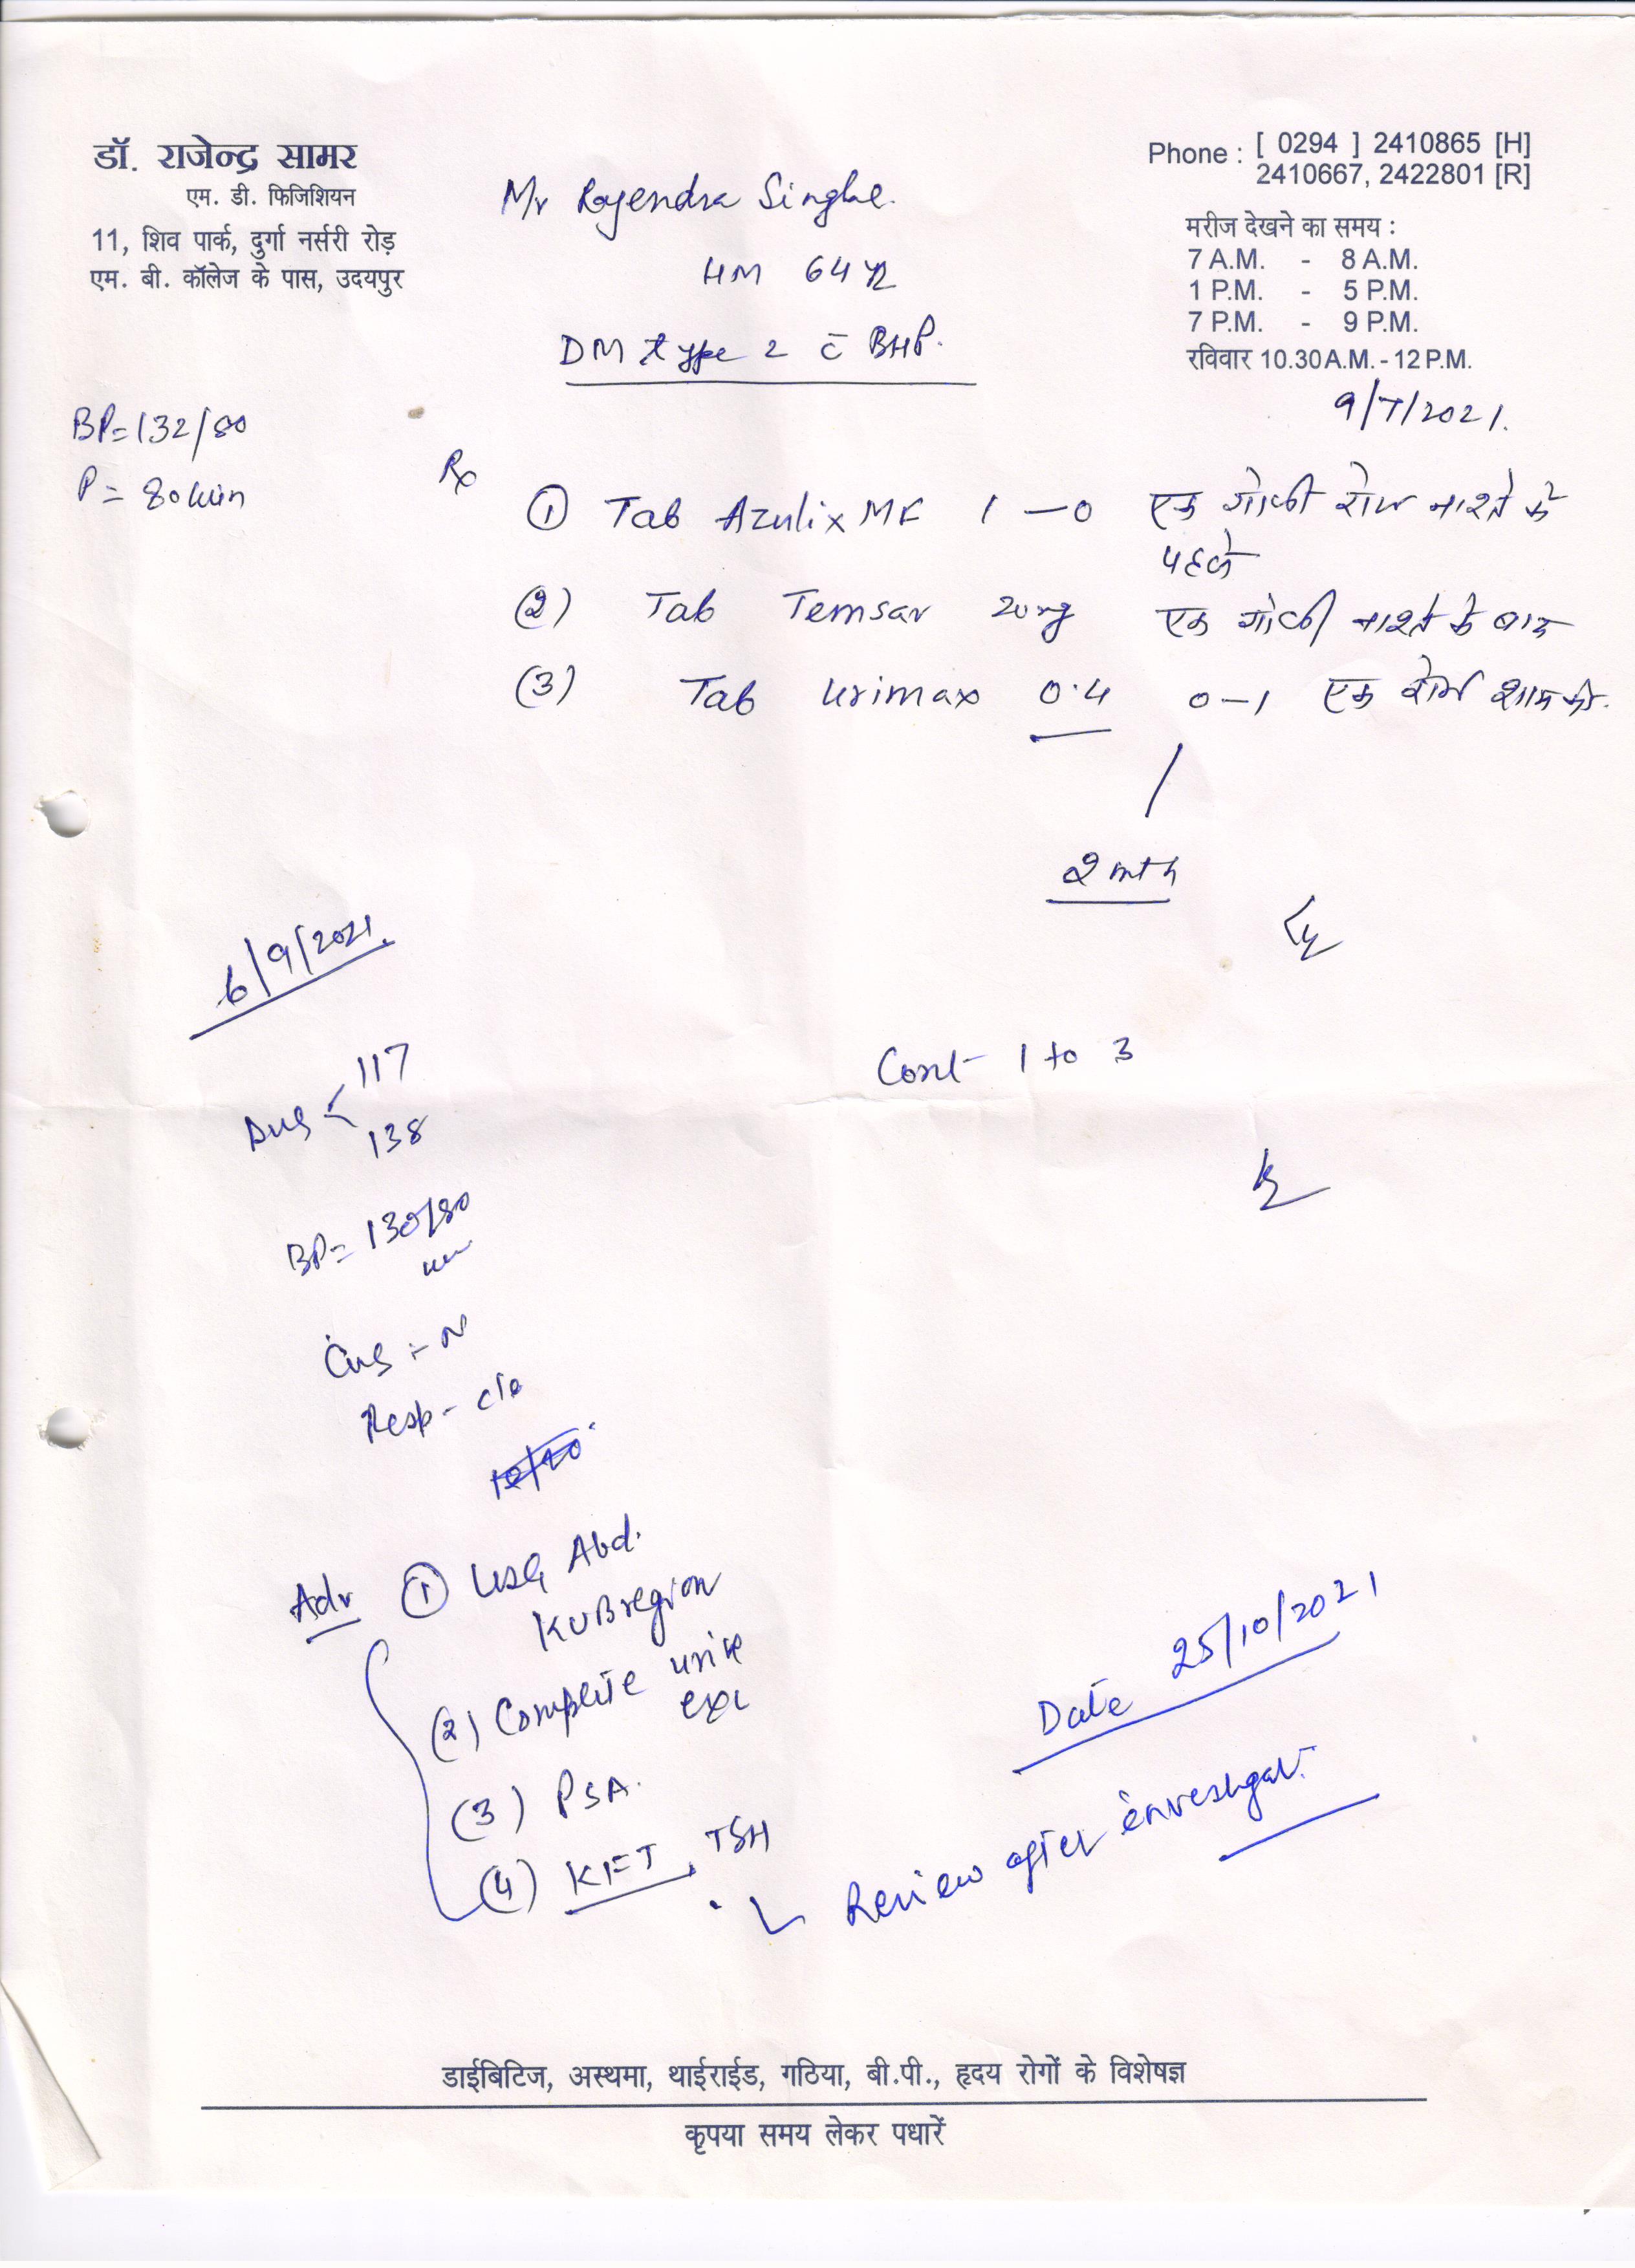 डॉ. राजेन्द्र सामर
एम. डी. फिजिशियन
11, शिव पार्क, दुर्गा नर्सरी रोड़
एम. बी. कॉलेज के पास, उदयपुर
Phone : [ 0294 ] 2410865 [H]
2410667, 2422801 [R]
मरीज देखने का समय :
7 A.M. - 8 A.M.
1 P.M. - 5 P.M.
7 P.M. - 9 P.M.
रविवार 10.30 A.M. - 12 P.M.
Mr Rajendra Singhe.
HM 64
DM type 2 c̄ BHP.
9/7/2021.
BP= 132/80
P = 80/min
Rx
① Tab Azulix MF 1 — 0 एक गोली रोज नाश्ते के
पहले
(2) Tab Temsar 20mg एक गोली नाश्ते के बाद
(3) Tab Urimax 0.4 0 — 1 एक रोज शाम को.
2 mth
6/9/2021.
117
138
Cont 1 to 3
BP= 130/80
:- N
Resp -
Adv ① USG Abd.
KUB region
(2) Complete urine
(3) PSA.
(4) KFT, TSH
Date 25/10/2021
Review after investigat.
डाईबिटिज, अस्थमा, थाईराईड, गठिया, बी.पी., हृदय रोगों के विशेषज्ञ
कृपया समय लेकर पधारें